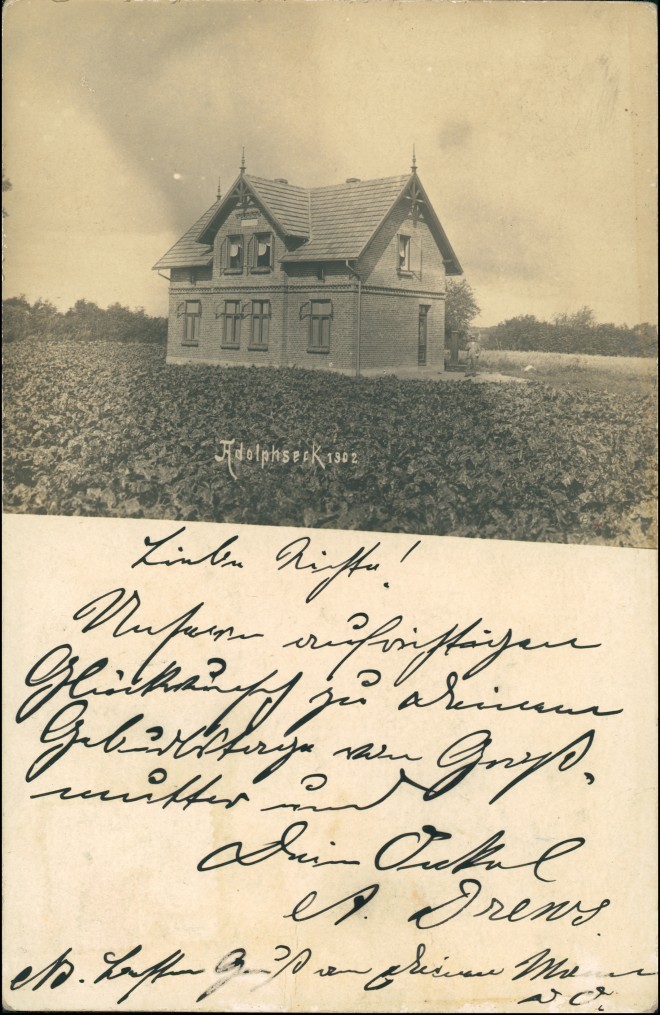 Adolphseck 1902
Liebe Nichte!
Unsern aufrichtigen
Glückwunsch zu deinem
Geburtstage von Groß-
mutter und
Dein Onkel
A. Drews.
NB. besten Gruß an deinen Mann